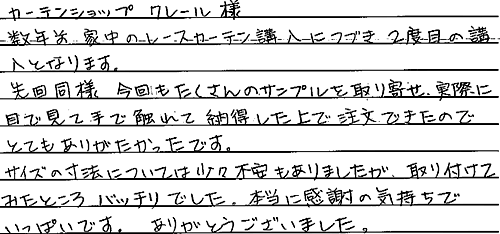 カーテンショップ クレール 様
数年前 家中のレースカーテン購入につづき 2度目の購
入となります。
先回同様 今回もたくさんのサンプルを取り寄せ、実際に
目で見て手で触れて 納得した上で注文できたので
とてもありがたかったです。
サイズの寸法については少々不安もありましたが、取り付けて
みたところ バッチリでした。本当に感謝の気持ちで
いっぱいです。 ありがとうございました。